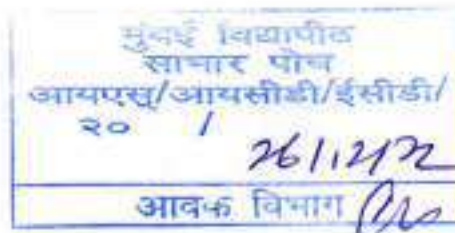 मुंबई विद्यापीठ
साभार पोच
आयएस्/आयसीडी/ईसीडी/
२० /
26/12/22
आवक विभाग